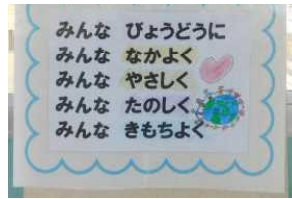 みんな びょうどうに
みんな なかよく
みんな やさしく
みんな たのしく
みんな きもちよく